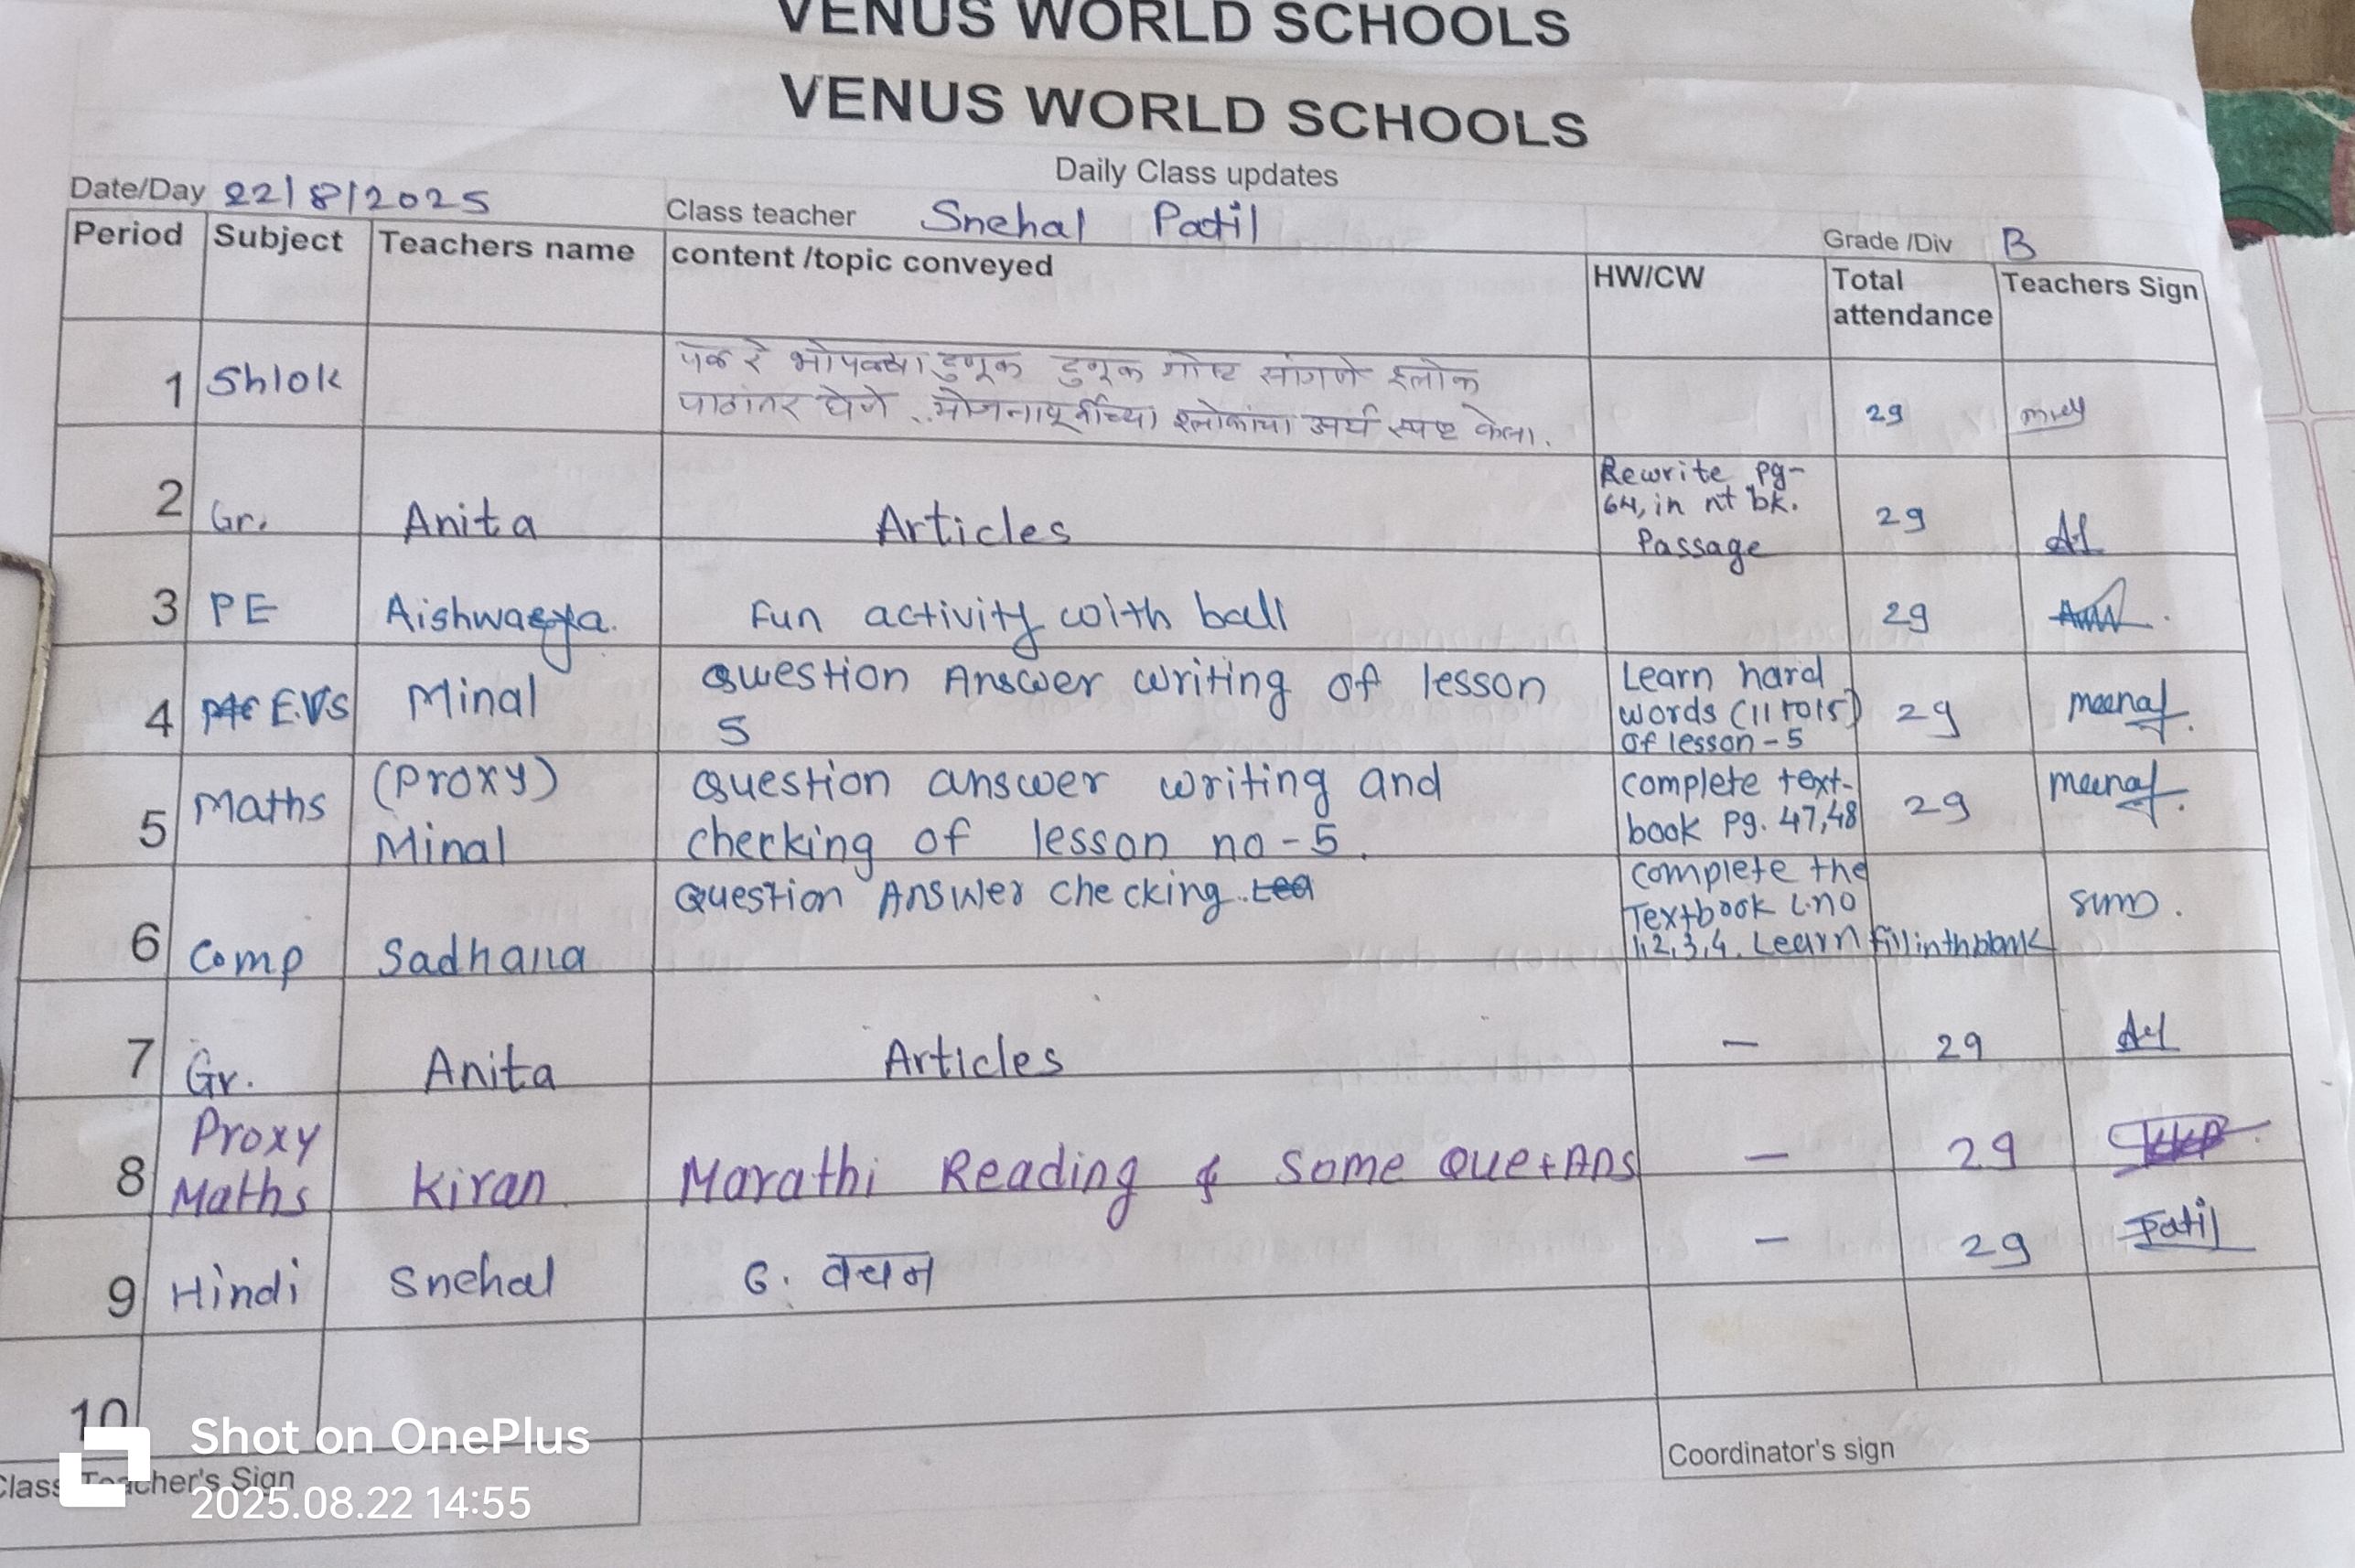 VENUS WORLD SCHOOLS
VENUS WORLD SCHOOLS
Daily Class updates
Date/Day 22/8/2025 Class teacher Snehal Patil Grade /Div B
Period Subject Teachers name content /topic conveyed HW/CW Total attendance Teachers Sign
1 Shlok रे भोपळ्या टुणूक टुणूक गोष्ट सांगणे श्लोक
पाठांतर घेणे . भोजनापूर्वीच्या श्लोकांचा अर्थ स्पष्ट केला . 29
2 Gr. Anita Articles Rewrite pg-
64, in nt bk.
Passage 29
3 PE Aishwarya. Fun activity with ball 29
4 E.V.S Minal Question Answer writing of lesson
5 Learn hard
words (11 to 15)
of lesson - 5 29 meenal
5 Maths (Proxy)
Minal Question answer writing and
checking of lesson no - 5. complete text-
book Pg. 47,48 29 meenal
6 Comp Sadhana Question Answer checking. complete the
Textbook L.no
1,2,3,4. Learn fill in th blank
7 Gr. Anita Articles — 29
8 Proxy
Maths Kiran Marathi Reading & Some Que+Ans — 29
9 Hindi Snehal 6. वचन — 29 Patil
10
Class Teacher's Sign
Coordinator's sign
Shot on OnePlus
2025.08.22 14:55